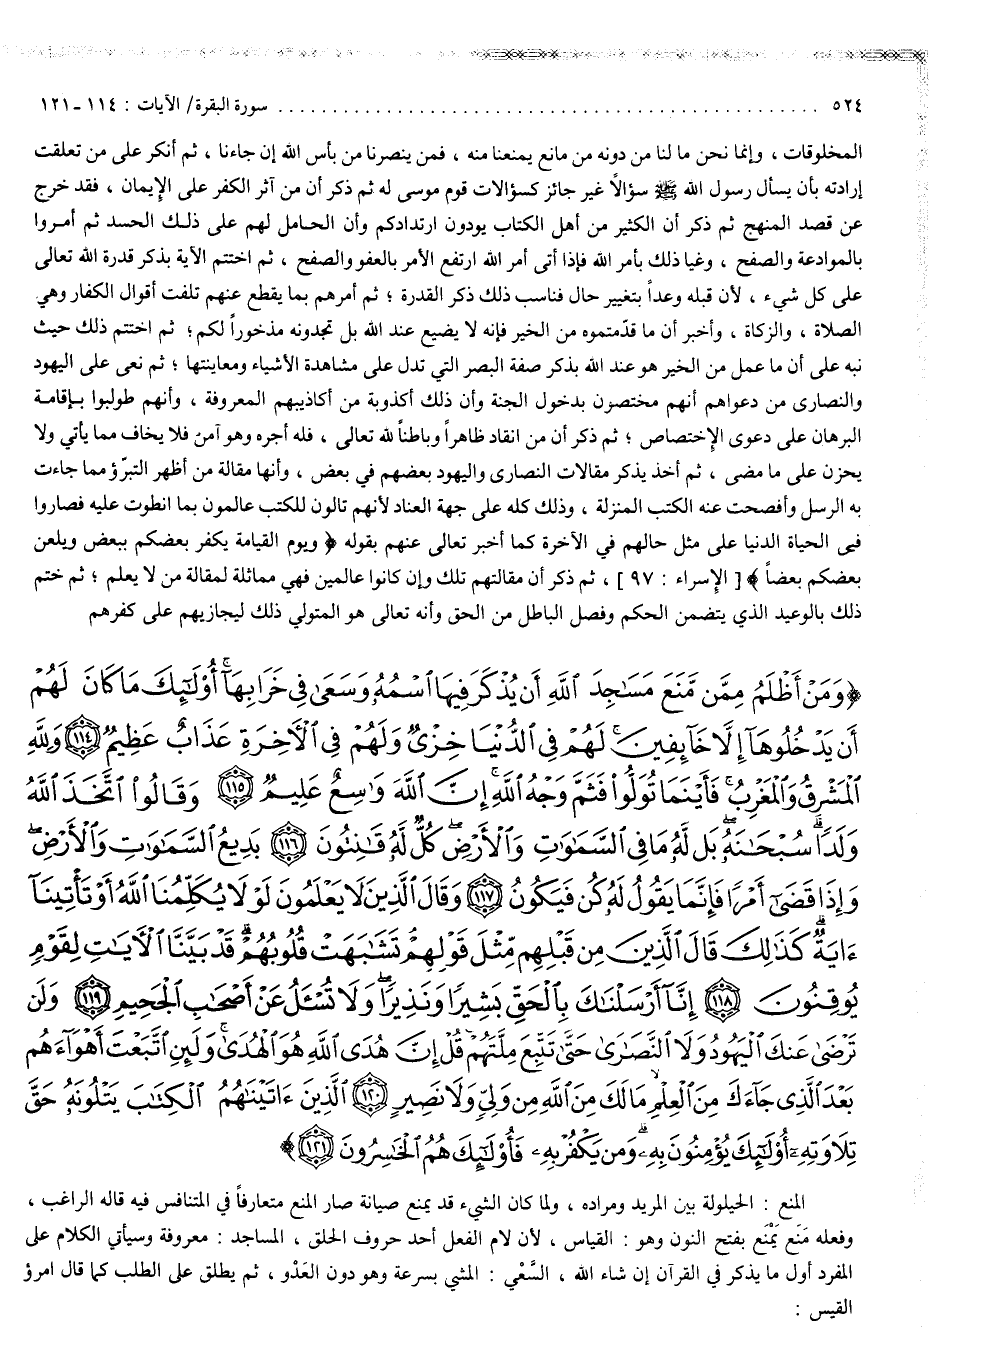 ٥٢٤ .................................................... سورة البقرة/ الآيات : ١١٤ـ١٢١
المخلوقات ، وإنما نحن ما لنا من دونه من مانع يمنعنا منه ، فمن ينصرنا من بأس الله إن جاءنا ، ثم أنكر على من تعلقت
إرادته بأن يسأل رسول الله ﷺ سؤالًا غير جائز كسؤالات قوم موسى له ثم ذكر أن من آثر الكفر على الإيمان ، فقد خرج
عن قصد المنهج ثم ذكر أن الكثير من أهل الكتاب يودون ارتدادكم وأن الحامل لهم على ذلك الحسد ثم أمروا
بالموادعة والصفح ، وغيا ذلك بأمر الله فإذا أتى أمر الله ارتفع الأمر بالعفو والصفح ، ثم اختتم الآية بذكر قدرة الله تعالى
على كل شيء ، لأن قبله وعداً بتغيير حال فناسب ذلك ذكر القدرة ؛ ثم أمرهم بما يقطع عنهم تلفت أقوال الكفار وهي
الصلاة ، والزكاة ، وأخبر أن ما قدّمتموه من الخير فإنه لا يضيع عند الله بل تجدونه مذخوراً لكم؛ ثم اختتم ذلك حيث
نبه على أن ما عمل من الخير هو عند الله بذكر صفة البصر التي تدل على مشاهدة الأشياء ومعاينتها ؛ ثم نعى على اليهود
والنصارى من دعواهم أنهم مختصون بدخول الجنة وأن ذلك أكذوبة من أكاذيبهم المعروفة ، وأنهم طولبوا بإقامة
البرهان على دعوى الإختصاص ؛ ثم ذكر أن من انقاد ظاهراً وباطناً لله تعالى ، فله أجره وهو آمن فلا يخاف مما يأتي ولا
يحزن على ما مضى ، ثم أخذ يذكر مقالات النصارى واليهود بعضهم في بعض ، وأنها مقالة من أظهر التبرّؤ مما جاءت
به الرسل وأفصحت عنه الكتب المنزلة ، وذلك كله على جهة العناد لأنهم تالون للكتب عالمون بما انطوت عليه فصاروا
فيى الحياة الدنيا على مثل حالهم في الآخرة كما أخبر تعالى عنهم بقوله ﴿ ويوم القيامة يكفر بعضكم ببعض ويلعن
بعضكم بعضاً ﴾ [ الإسراء : ٩٧ ] ، ثم ذكر أن مقالتهم تلك وإن كانوا عالمين فهي مماثلة لمقالة من لا يعلم ؛ ثم ختم
ذلك بالوعيد الذي يتضمن الحكم وفصل الباطل من الحق وأنه تعالى هو المتولي ذلك ليجازيهم على كفرهم
﴿ وَمَنْ أَظْلَمُ مِمَّن مَّنَعَ مَسَٰجِدَ ٱللَّهِ أَن يُذْكَرَ فِيهَا ٱسْمُهُۥ وَسَعَىٰ فِى خَرَابِهَآ ۚ أُو۟لَٰٓئِكَ مَا كَانَ لَهُمْ
أَن يَدْخُلُوهَآ إِلَّا خَآئِفِينَ ۚ لَهُمْ فِى ٱلدُّنْيَا خِزْىٌ وَلَهُمْ فِى ٱلْأَخِرَةِ عَذَابٌ عَظِيمٌ ١١٤ وَلِلَّهِ
ٱلْمَشْرِقُ وَٱلْمَغْرِبُ ۚ فَأَيْنَمَا تُوَلُّوا۟ فَثَمَّ وَجْهُ ٱللَّهِ ۚ إِنَّ ٱللَّهَ وَٰسِعٌ عَلِيمٌ ١١٥ وَقَالُوا۟ ٱتَّخَذَ ٱللَّهُ
وَلَدًا ۗ سُبْحَٰنَهُۥ ۖ بَل لَّهُۥ مَا فِى ٱلسَّمَٰوَٰتِ وَٱلْأَرْضِ ۖ كُلٌّ لَّهُۥ قَٰنِتُونَ ١١٦ بَدِيعُ ٱلسَّمَٰوَٰتِ وَٱلْأَرْضِ ۖ
وَإِذَا قَضَىٰٓ أَمْرًا فَإِنَّمَا يَقُولُ لَهُۥ كُن فَيَكُونُ ١١٧ وَقَالَ ٱلَّذِينَ لَا يَعْلَمُونَ لَوْلَا يُكَلِّمُنَا ٱللَّهُ أَوْ تَأْتِينَآ
ءَايَةٌ ۗ كَذَٰلِكَ قَالَ ٱلَّذِينَ مِن قَبْلِهِم مِّثْلَ قَوْلِهِمْ ۘ تَشَٰبَهَتْ قُلُوبُهُمْ ۗ قَدْ بَيَّنَّا ٱلْأَيَٰتِ لِقَوْمٍ
يُوقِنُونَ ١١٨ إِنَّآ أَرْسَلْنَٰكَ بِٱلْحَقِّ بَشِيرًا وَنَذِيرًا ۖ وَلَا تُسْـَٔلُ عَنْ أَصْحَٰبِ ٱلْجَحِيمِ ١١٩ وَلَن
تَرْضَىٰ عَنكَ ٱلْيَهُودُ وَلَا ٱلنَّصَٰرَىٰ حَتَّىٰ تَتَّبِعَ مِلَّتَهُمْ ۗ قُلْ إِنَّ هُدَى ٱللَّهِ هُوَ ٱلْهُدَىٰ ۗ وَلَئِنِ ٱتَّبَعْتَ أَهْوَآءَهُم
بَعْدَ ٱلَّذِى جَآءَكَ مِنَ ٱلْعِلْمِ ۙ مَا لَكَ مِنَ ٱللَّهِ مِن وَلِىٍّ وَلَا نَصِيرٍ ١٢٠ ٱلَّذِينَ ءَاتَيْنَٰهُمُ ٱلْكِتَٰبَ يَتْلُونَهُۥ حَقَّ
تِلَاوَتِهِۦٓ أُو۟لَٰٓئِكَ يُؤْمِنُونَ بِهِۦ ۗ وَمَن يَكْفُرْ بِهِۦ فَأُو۟لَٰٓئِكَ هُمُ ٱلْخَٰسِرُونَ ١٢١ ﴾
المنع : الحيلولة بين المريد ومراده ، ولما كان الشيء قد يمنع صيانة صار المنع متعارفاً في المتنافس فيه قاله الراغب ،
وفعله مَنَع يَمْنَع بفتح النون وهو : القياس ، لأن لام الفعل أحد حروف الحلق ، المساجد : معروفة وسيأتي الكلام على
المفرد أول ما يذكر في القرآن إن شاء الله ، السَّعْي : المشي بسرعة وهو دون العَدْو ، ثم يطلق على الطلب كما قال امرؤ
القيس :